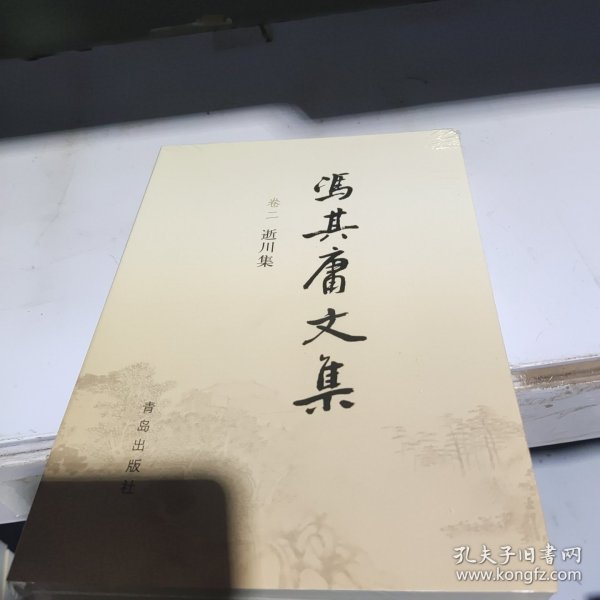 馮其庸文集
卷二 逝川集
青岛出版社
孔夫子旧书网
www.kongfz.com